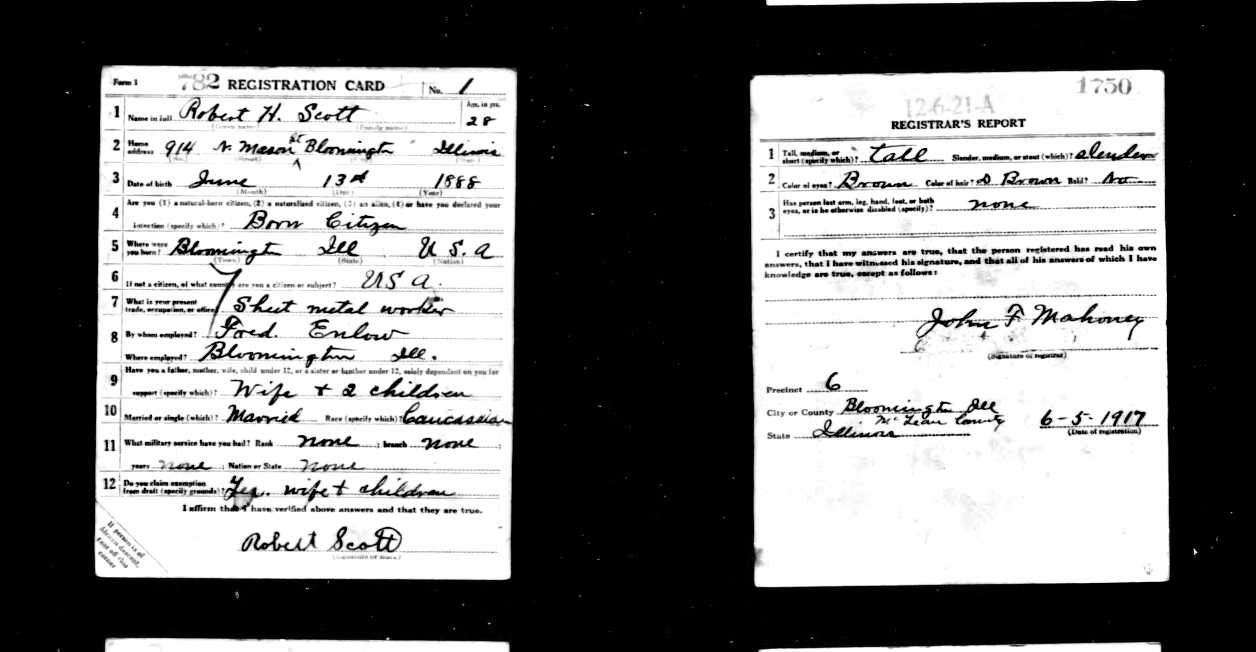 Form 1 782 REGISTRATION CARD No. 1
1 Name in full Robert H. Scott Age, in yrs. 28
(Given name) (Family name)
2 Home address 914 N. Mason St Bloomington Illinois
(No.) (Street) (State)
3 Date of birth June 13th 1888
(Month) (Day) (Year)
4 Are you (1) a natural-born citizen, (2) a naturalized citizen, (3) an alien, (4) or have you declared your
intention (specify which)? Born Citizen
5 Where were you born? Bloomington Ill U.S.A
(Town) (State) (Nation)
6 If not a citizen, of what country are you a citizen or subject? USA.
7 What is your present trade, occupation, or office? Sheet metal worker
8 By whom employed? Fred. Enlow
Where employed? Bloomington Ill.
9 Have you a father, mother, wife, child under 12, or a sister or brother under 12, solely dependent on you for
support (specify which)? Wife + 2 children
10 Married or single (which)? Married Race (specify which)? Caucassian
11 What military service have you had? Rank none ; branch none
years none ; Nation or State none
12 Do you claim exemption from draft (specify grounds)? Yes. wife + children
I affirm that I have verified above answers and that they are true.
Robert Scott
If person is of
African descent,
tear off this
corner
1750
12-6-21-A
REGISTRAR'S REPORT
1 Tall, medium, or short (specify which)? tall Slender, medium, or stout (which)? slender
2 Color of eyes? Brown Color of hair? D Brown Bald? No
3 Has person lost arm, leg, hand, foot, or both
eyes, or is he otherwise disabled (specify)? none
I certify that my answers are true, that the person registered has read his own
answers, that I have witnessed his signature, and that all of his answers of which I have
knowledge are true, except as follows:
John F Mahoney
(Signature of registrar)
Precinct 6
City or County Bloomington Ill
McLean County
State Illinois
6-5-1917
(Date of registration)